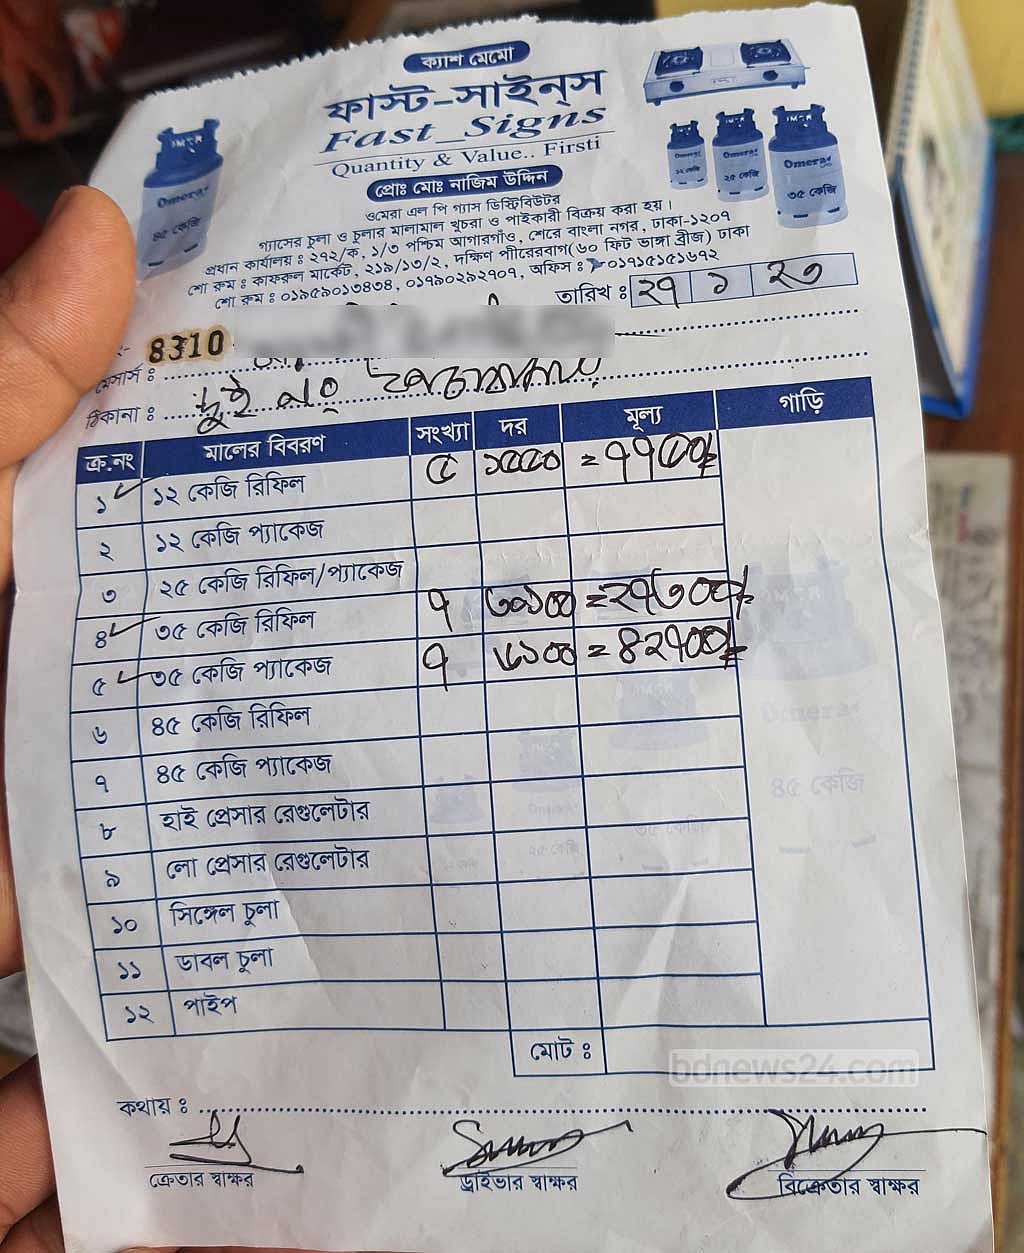 ক্যাশ মেমো
ফাস্ট-সাইন্স
Fast_Signs
Quantity & Value.. Firsti
প্রোঃ মোঃ নাজিম উদ্দিন
ওমেরা এল পি গ্যাস ডিস্ট্রিবিউটর
গ্যাসের চুলা ও চুলার মালামাল খুচরা ও পাইকারী বিক্রয় করা হয়।
প্রধান কার্যালয় : ২৭২/ক, ১/৩ পশ্চিম আগারগাঁও, শেরে বাংলা নগর, ঢাকা-১২০৭
শো রুম : কাফরুল মার্কেট, ২১৯/১৩/২, দক্ষিণ পীরেরবাগ(৬০ ফিট ভাঙ্গা ব্রীজ) ঢাকা
শো রুম : ০১৯৫৯০১৩৪৩৪, ০১৭৯০২৯২৭০৭, অফিস : ০১৭১৫১৫১৬৭২
Omera
৪৫ কেজি
Omera
১২ কেজি
Omera
২৫ কেজি
Omera
৩৫ কেজি
তারিখ : ২৭ ১ ২৩
8310
মেসার্স :
ঠিকানা : দুই নং
ক্র.নং মালের বিবরণ সংখ্যা দর মূল্য গাড়ি
১ ১২ কেজি রিফিল ৫ = ৭৭৫০/=
২ ১২ কেজি প্যাকেজ
৩ ২৫ কেজি রিফিল/প্যাকেজ
৪ ৩৫ কেজি রিফিল ৭ ৩৯০০ = ২৭৩০০/=
৫ ৩৫ কেজি প্যাকেজ ৭ ৬১০০ = ৪২৭০০/=
৬ ৪৫ কেজি রিফিল
৭ ৪৫ কেজি প্যাকেজ
৮ হাই প্রেসার রেগুলেটার
৯ লো প্রেসার রেগুলেটার
১০ সিঙ্গেল চুলা
১১ ডাবল চুলা
১২ পাইপ
Omera
৪৫ কেজি
মোট :
bdnews24.com
কথায় :
ক্রেতার স্বাক্ষর ড্রাইভার স্বাক্ষর বিক্রেতার স্বাক্ষর